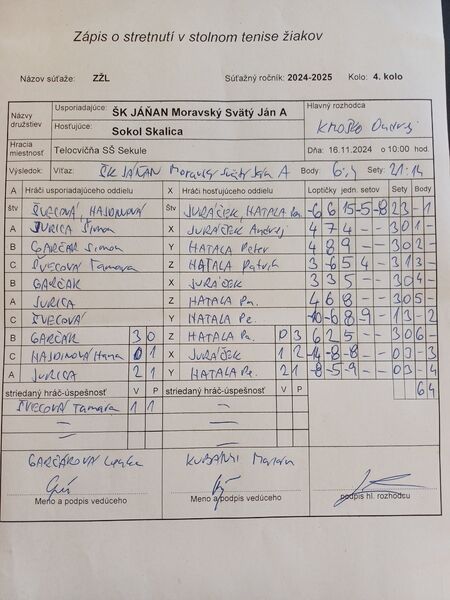 Zápis o stretnutí v stolnom tenise žiakov
Názov súťaže: ZŽL Súťažný ročník: 2024-2025 Kolo: 4. kolo
Názvy družstiev Usporiadajúce: ŠK JÁŇAN Moravský Svätý Ján A Hlavný rozhodca
Hosťujúce: Sokol Skalica
Hracia miestnosť Telocvičňa SŠ Sekule Dňa: 16.11.2024 o 10:00 hod.
Výsledok: Víťaz: ŠK JÁŇAN Moravský Svätý Ján A Body 6:4 Sety: 21:14
A Hráči usporiadajúceho oddielu X Hráči hosťujúceho oddielu Loptičky jedn. setov Sety Body
štv ŠVECOVÁ, HAJDINOVÁ Štv JURÁČEK, HATALA Pa. -6 6 15 -5 -8 2 3 - 1
A JURICA Šimon X JURÁČEK Andrej 4 7 4 - - 3 0 1 -
B GARČÁR Šimon Y HATALA Peter 4 8 9 - - 3 0 2 -
C ŠVECOVÁ Tamara Z HATALA Patrik 3 -6 5 4 - 3 1 3 -
B GARČÁR X JURÁČEK 3 3 5 - - 3 0 4 -
A JURICA Z HATALA Pa. 4 6 8 - - 3 0 5 -
C ŠVECOVÁ Y HATALA Pe. -10 -6 8 -9 - 1 3 - 2
B GARČÁR 3 0 Z HATALA Pa. 0 3 6 2 5 - - 3 0 6 -
C HAJDINOVÁ Hana 0 1 X JURÁČEK 1 2 -4 -8 -8 - - 0 3 - 3
A JURICA 2 1 Y HATALA Pe. 2 1 -8 -5 -9 - - 0 3 - 4
striedaný hráč-úspešnosť V P striedaný hráč-úspešnosť V P 6 4
ŠVECOVÁ Tamara 1 1
GARČÁROVÁ
Meno a podpis vedúceho Meno a podpis vedúceho podpis hl. rozhodcu